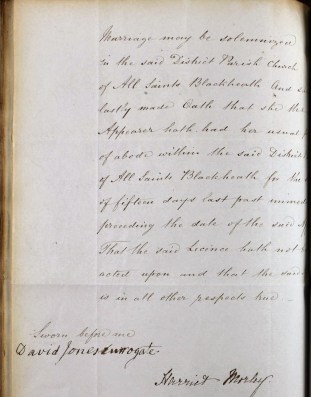 Marriage may be solemnized
in the said District Parish Church
of All Saints Blackheath And
lastly made Oath that she the
Appearer hath had her usual
of abode within the said District
of All Saints Blackheath for the
of fifteen days last past
preceding the date of the said
That the said Licence hath not
acted upon and that the said
is in all other respects true
Sworn before me
David Jones Surrogate
Harriet Morley